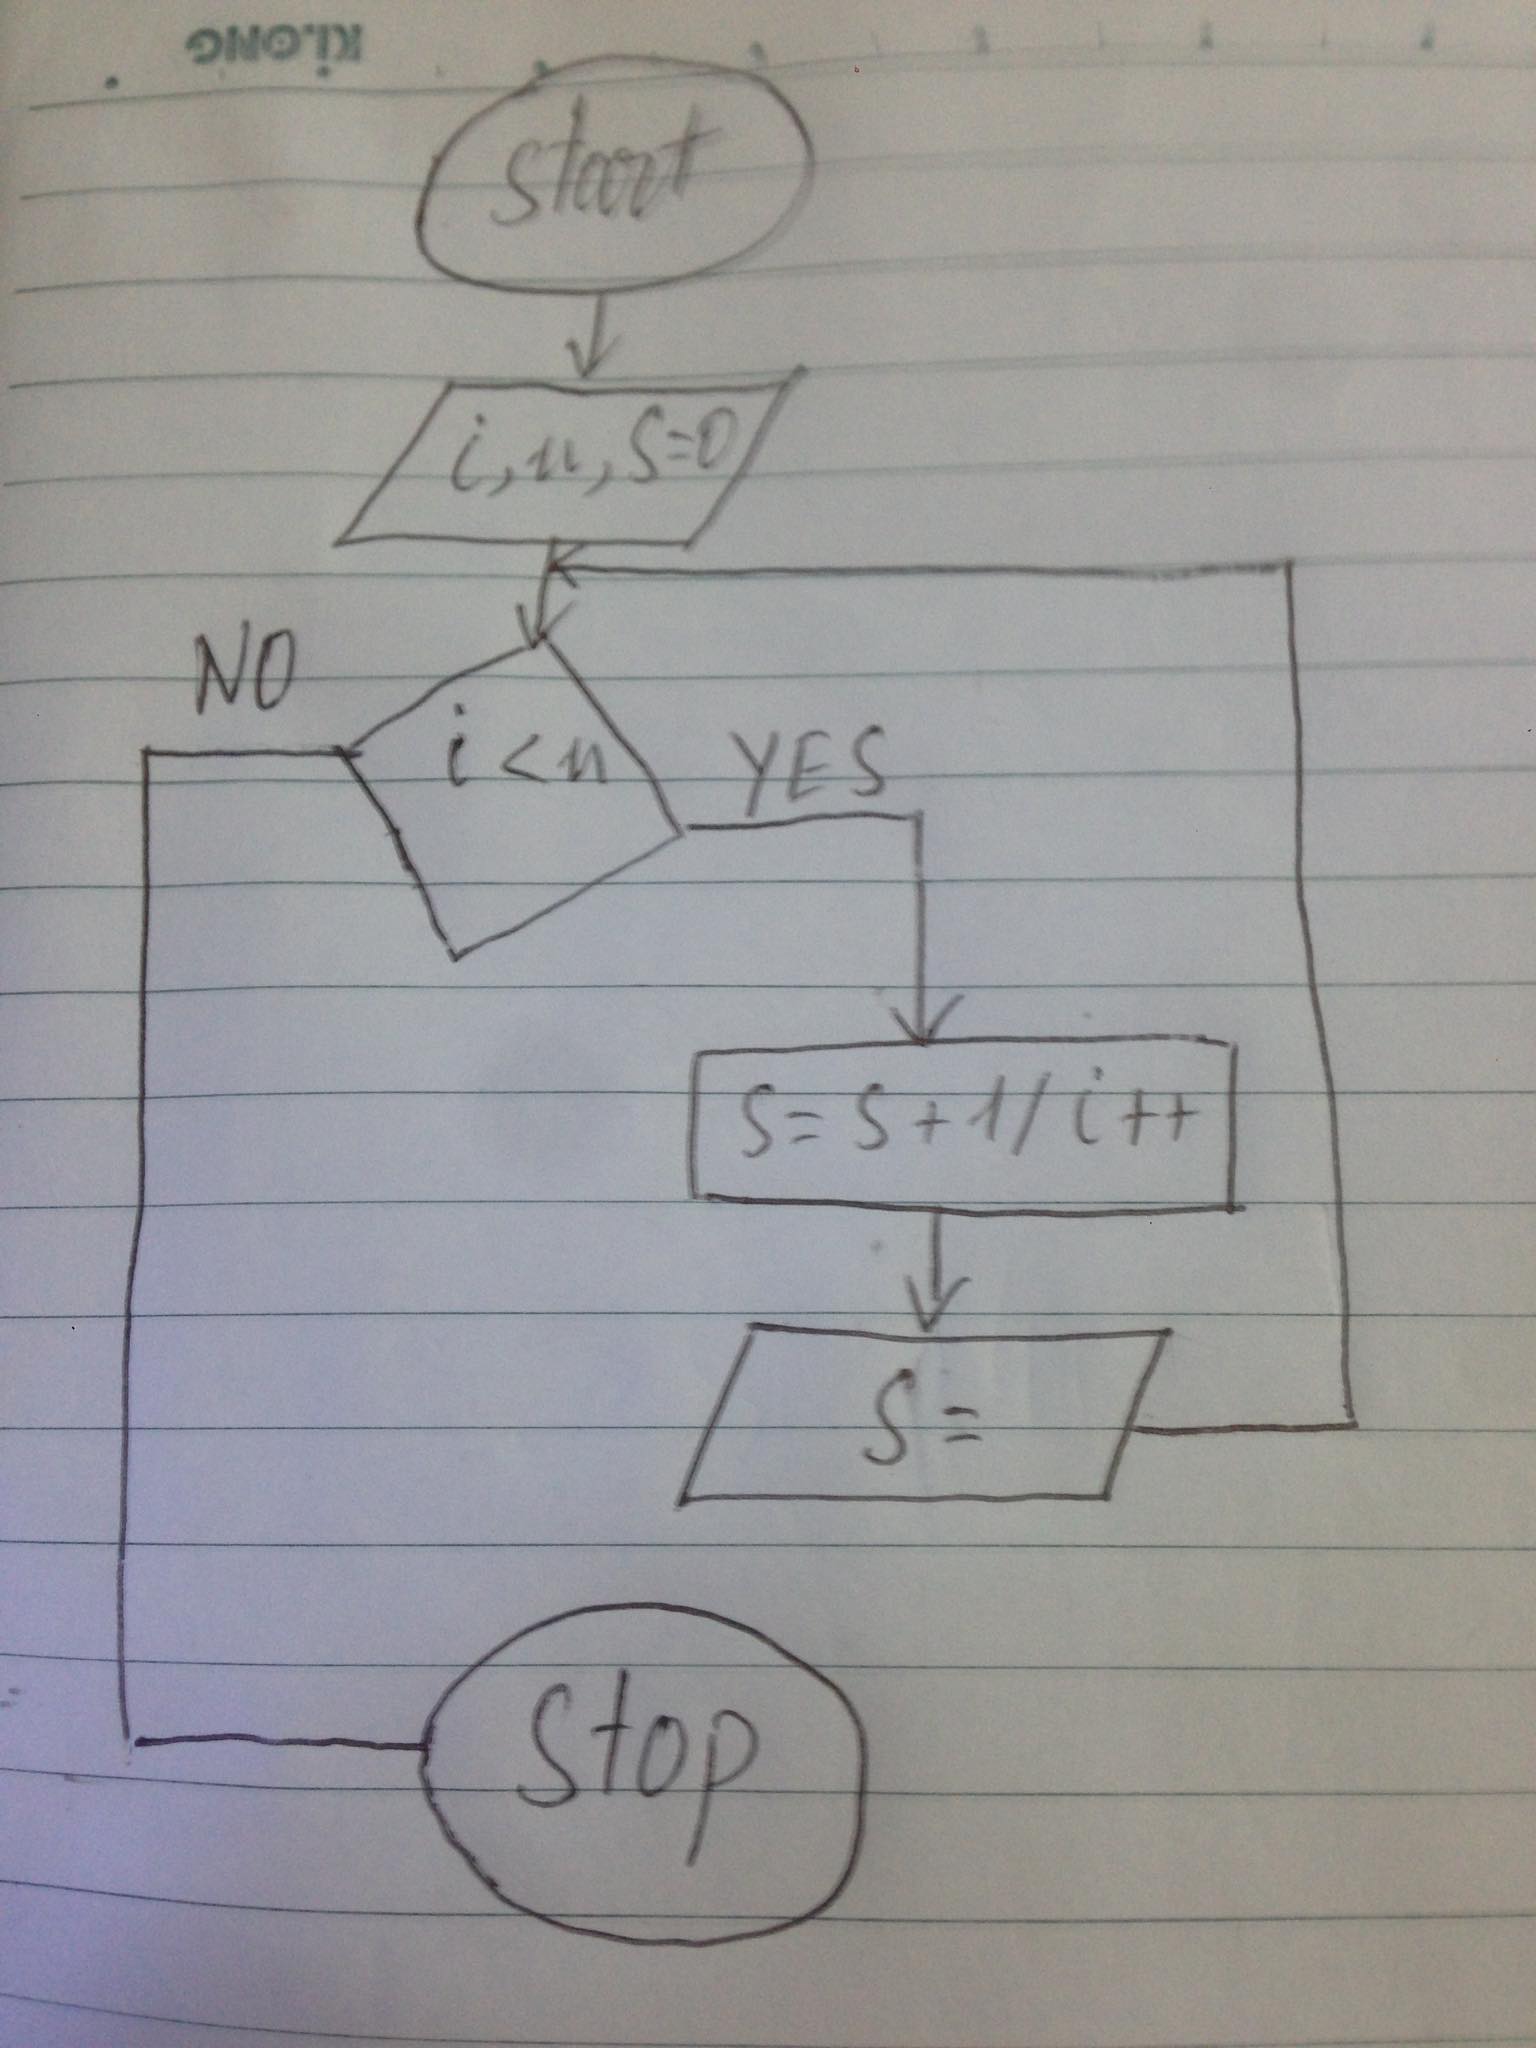 KLONG
start
i, n, S=0
NO
i < n
YES
S = S + 1 / i ++
S =
Stop